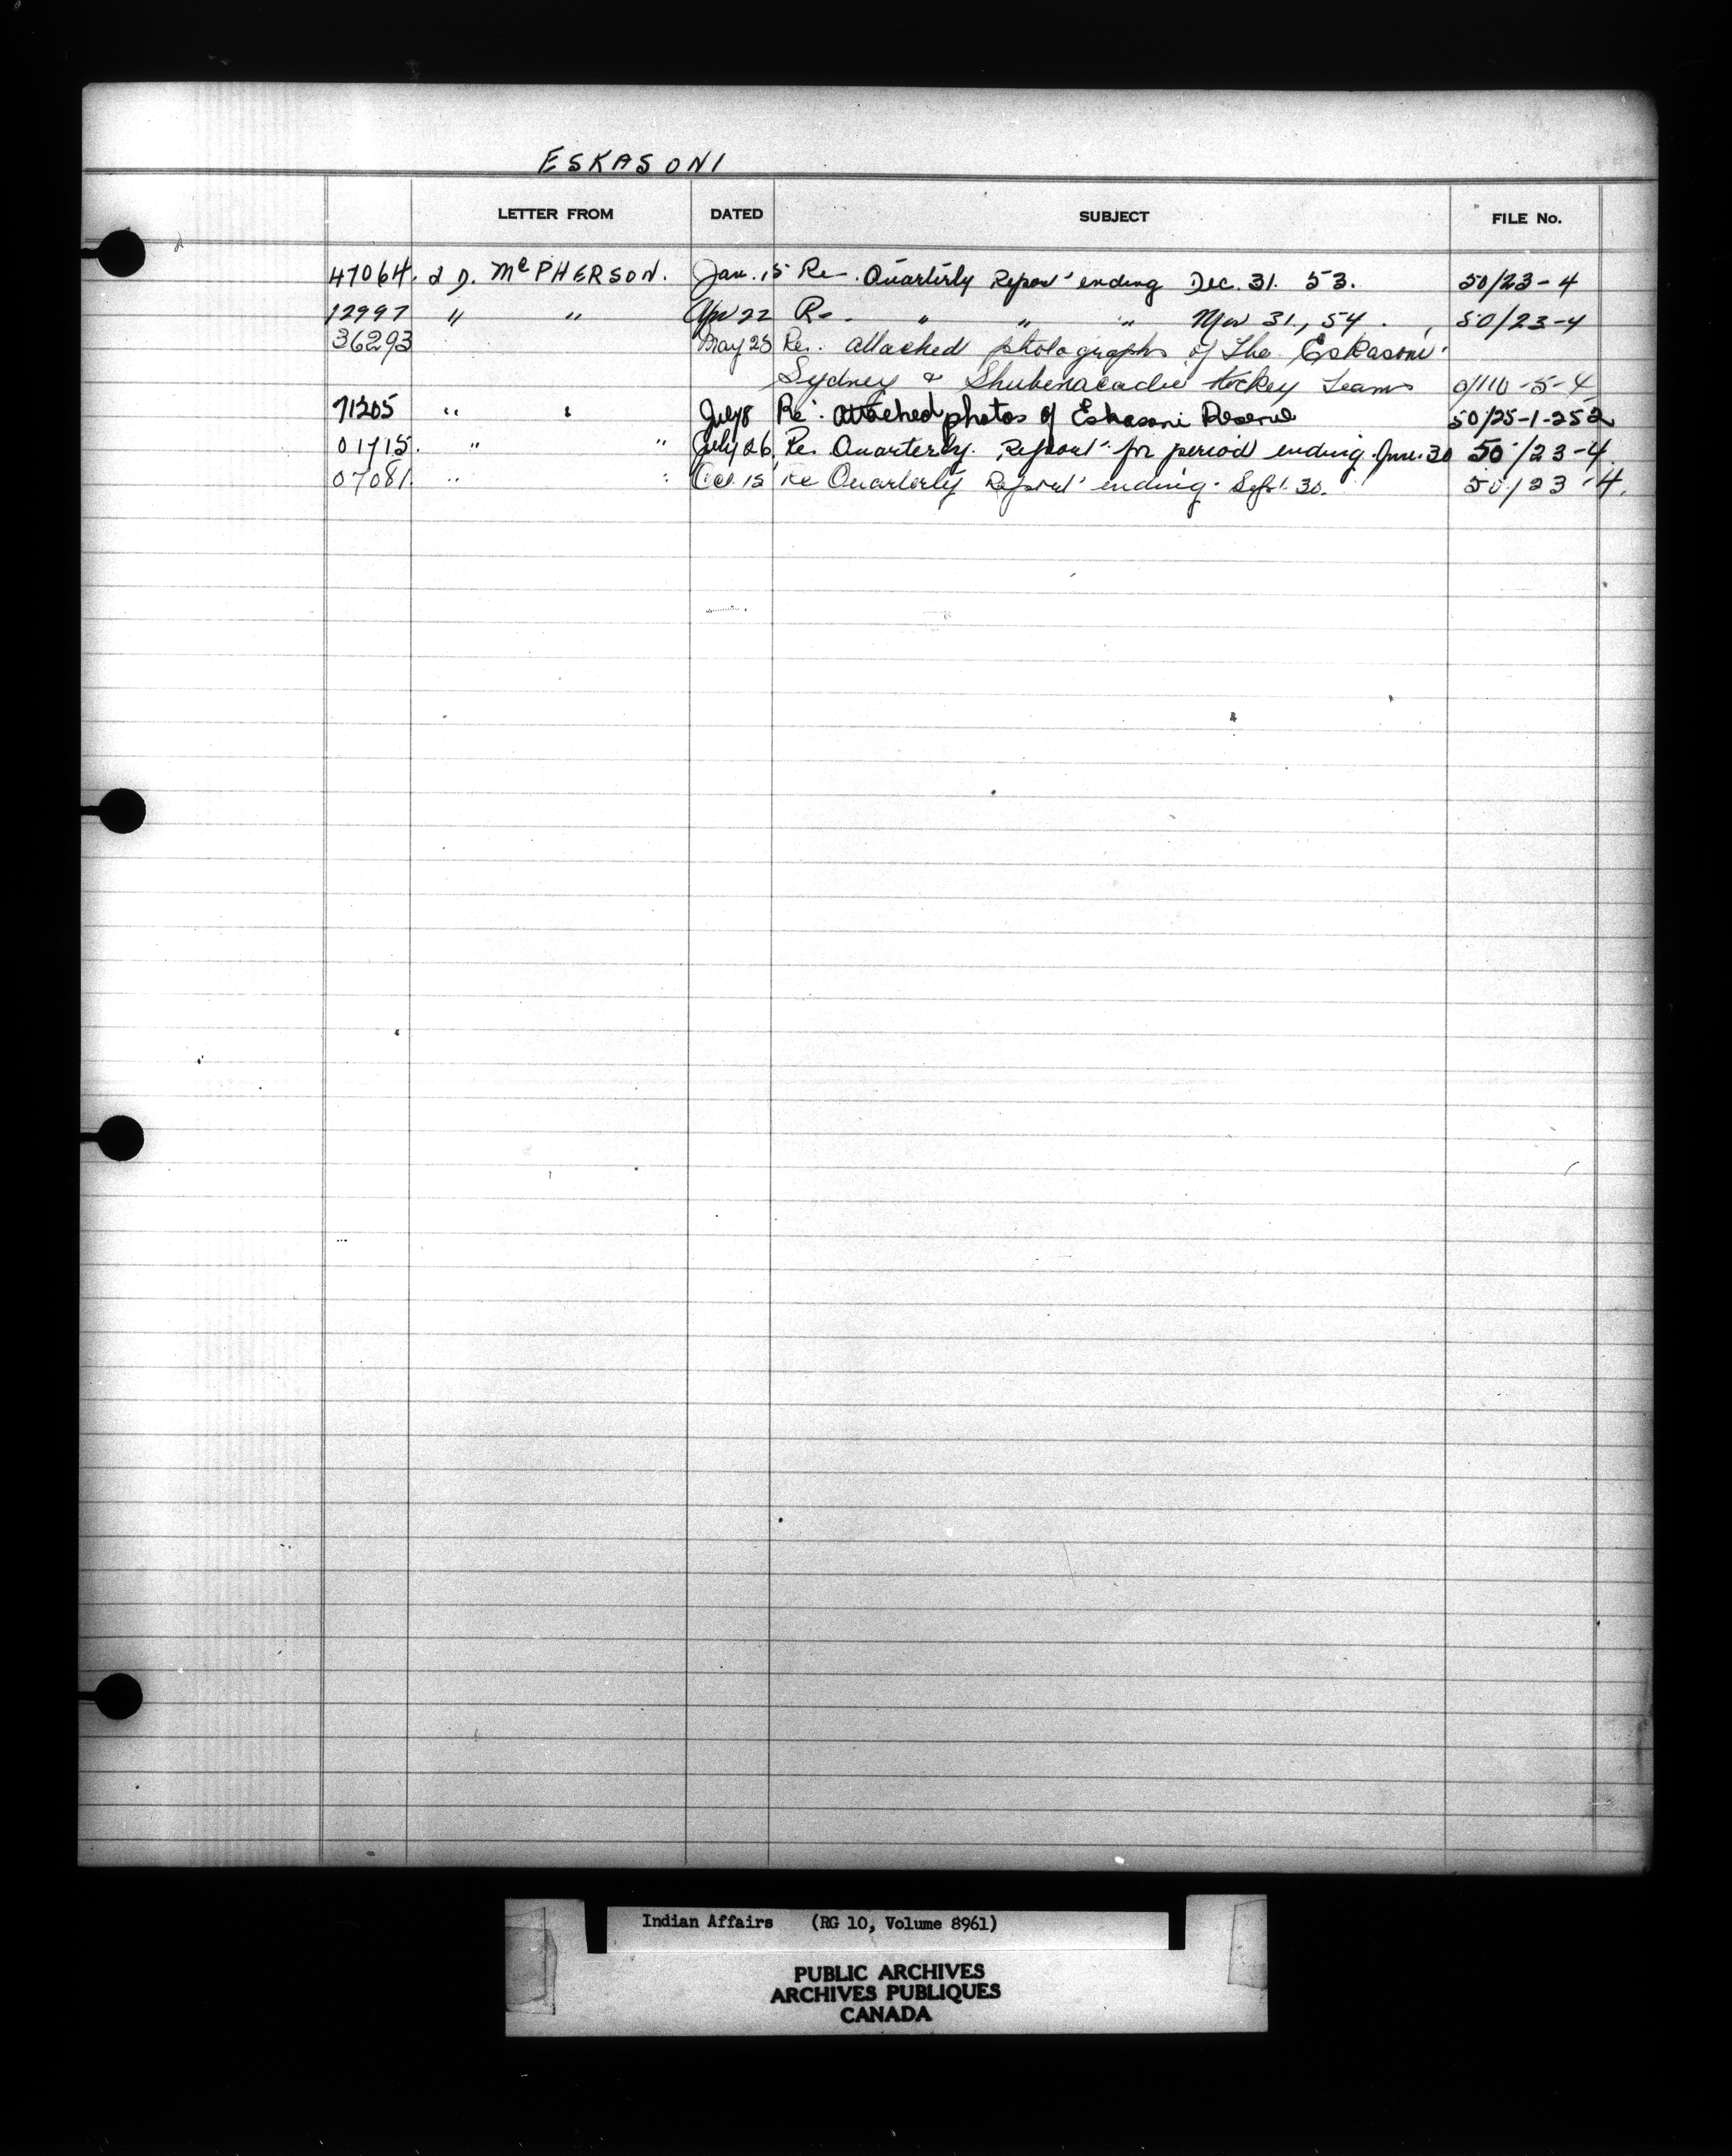 ESKASONI
LETTER FROM DATED SUBJECT FILE No.
47064. J D. McPHERSON. Jan. 15 Re. Quarterly Report ending Dec. 31. 53. 50/23-4
12997 " " Apr 22 Re. " " " Mar 31, 54. 50/23-4
36293 May 25 Re. attached photographs of the Eskasoni
Sydney & Shubenacadie Hockey Teams 0/110-5-4
71205 " " July 8 Re. attached photos of Eskasoni Reserve 50/25-1-252
01715. " " July 26, Re. Quarterly Report for period ending June. 30 50/23-4.
07081. " " Oct. 15 Re Quarterly Report ending Sept. 30. 50/23-4.
Indian Affairs (RG 10, Volume 8961)
PUBLIC ARCHIVES
ARCHIVES PUBLIQUES
CANADA